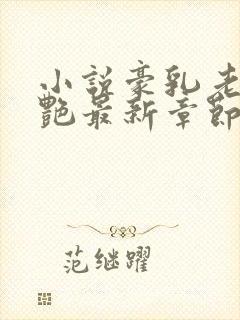 小说豪乳老
艳最新章节
范继躍